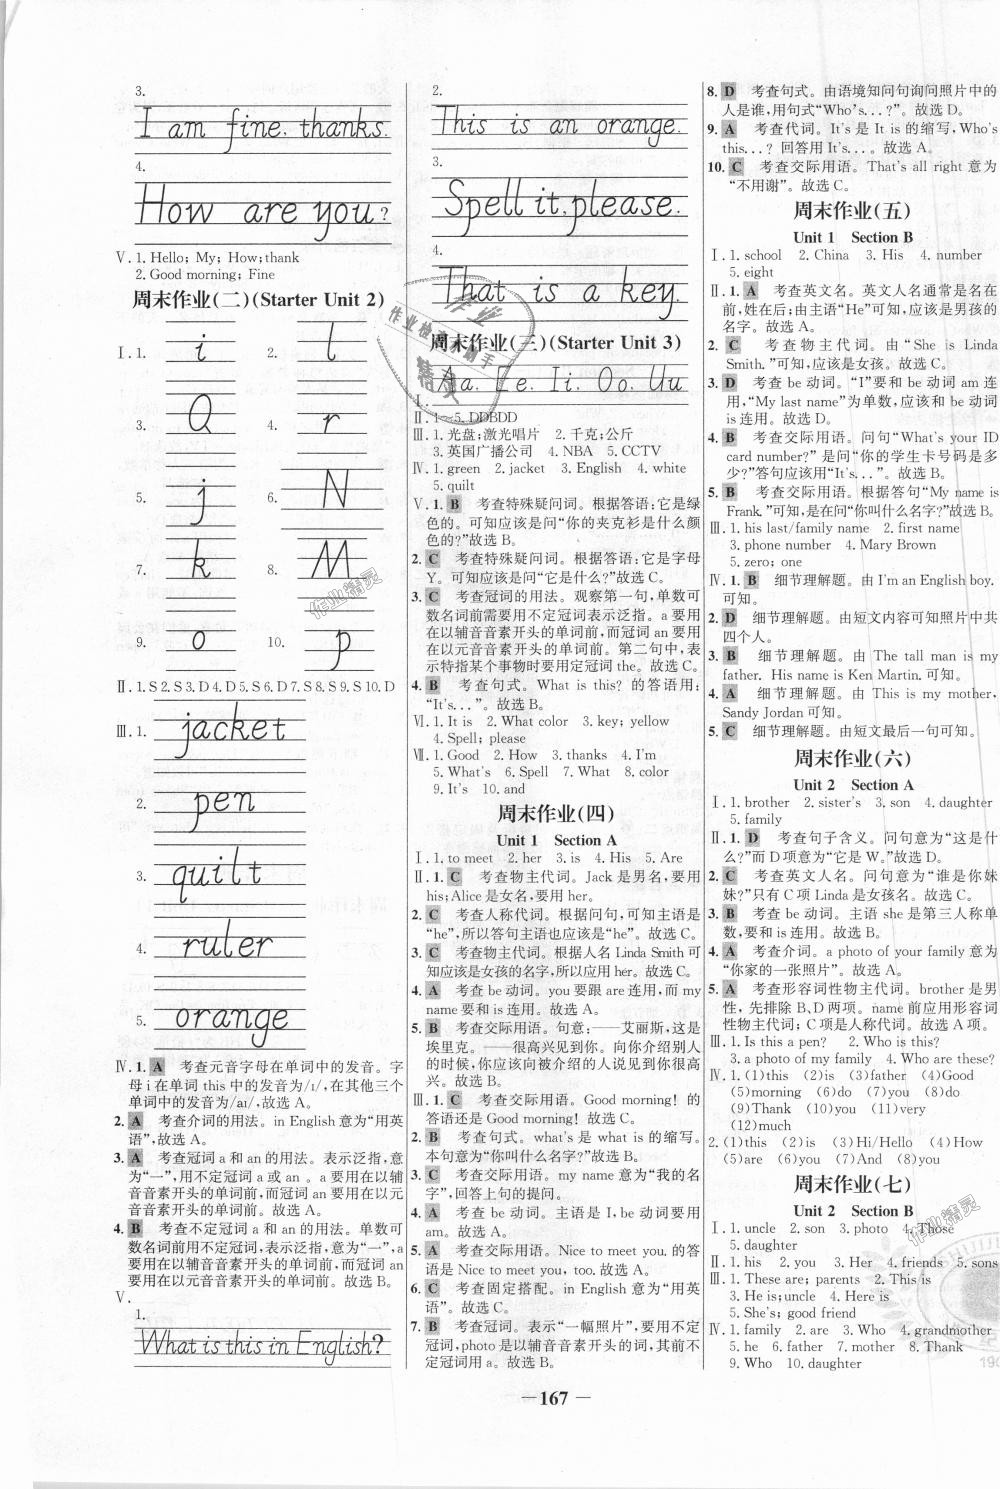 3.
I am fine, thanks.
4.
How are you?
Ⅴ. 1. Hello; My; How; thank
2. Good morning; Fine
周末作业(二)(Starter Unit 2)
Ⅰ. 1. i 2. l
3. Q 4. r
5. j 6. N
7. k 8. M
9. o 10. p
Ⅱ. 1. S 2. S 3. D 4. D 5. D 6. D 7. S 8. S 9. S 10. D
Ⅲ. 1. jacket
2. pen
3. quilt
4. ruler
5. orange
Ⅳ. 1. A 考查元音字母在单词中的发音。字
母 i 在单词 this 中的发音为/ɪ/,在其他三个
单词中的发音为/aɪ/,故选A。
2. A 考查介词的用法。in English 意为“用英
语”,故选A。
3. A 考查冠词 a 和 an 的用法。表示泛指,意
为“一”,用不定冠词 a 或 an 。a 要用在以辅
音音素开头的单词前,而冠词 an 要用在以元
音音素开头的单词前。故选A。
4. B 考查不定冠词 a 和 an 的用法。单数可
数名词前用不定冠词,表示泛指,意为“一”,a
要用在以辅音音素开头的单词前,而冠词 an
要用在以元音音素开头的单词前。故选B。
Ⅴ.
1.
What is this in English?
2.
This is an orange.
3.
Spell it, please.
4.
That is a key.
周末作业(三)(Starter Unit 3)
Ⅰ. Aa. Ee. Ii. Oo. Uu
Ⅱ. 1~5. DDBDD
Ⅲ. 1. 光盘;激光唱片 2. 千克;公斤
3. 英国广播公司 4. NBA 5. CCTV
Ⅳ. 1. green 2. jacket 3. English 4. white
5. quilt
Ⅴ. 1. B 考查特殊疑问词。根据答语:它是绿
色的。可知应该是问“你的夹克衫是什么颜
色的?”故选B。
2. C 考查特殊疑问词。根据答语:它是字母
Y。可知应该是问“它是什么?”故选C。
3. C 考查冠词的用法。观察第一句,单数可
数名词前需要用不定冠词表示泛指。a 要用
在以辅音音素开头的单词前,而冠词 an 要用
在以元音音素开头的单词前。第二句中,表
示特指某个事物时要用定冠词 the。故选C。
4. B 考查句式。What is this? 的答语用:
“It's. . .”。故选B。
Ⅵ. 1. It is 2. What color 3. key; yellow
4. Spell; please
Ⅶ. 1. Good 2. How 3. thanks 4. I'm
5. What's 6. Spell 7. What 8. color
9. It's 10. and
周末作业(四)
Unit 1 Section A
Ⅰ. 1. to meet 2. her 3. is 4. His 5. Are
Ⅱ. 1. C 考查物主代词。Jack 是男名,要用
his;Alice 是女名,要用 her。
2. C 考查人称代词。根据问句,可知主语是
“he”,所以答句主语也应该是“he”。故选C。
3. C 考查物主代词。根据人名 Linda Smith 可
知应该是女孩的名字,所以应用 her。故选C。
4. A 考查 be 动词。you 要跟 are 连用,而 my
name 要和 is 连用。故选A。
5. B 考查交际用语。句意:——艾丽斯,这是
埃里克。——很高兴见到你。向你介绍别人
的时候,你应该向被介绍的人说见到你很高
兴。故选B。
Ⅲ. 1. C 考查交际用语。Good morning! 的
答语还是 Good morning! 故选C。
2. B 考查句式。what's 是 what is 的缩写。
本句意为“你叫什么名字?”故选B。
3. C 考查交际用语。my name 意为“我的名
字”,回答上句的提问。
4. A 考查 be 动词。主语是 I, be 动词要用
am。故选A。
5. A 考查交际用语。Nice to meet you. 的答
语是 Nice to meet you, too. 故选A。
6. C 考查固定搭配。in English 意为“用英
语”。故选C。
7. B 考查冠词。表示“一幅照片”,要用不定
冠词,photo 是以辅音音素开头的词,其前不
定冠词用 a。故选B。
8. D 考查句式。由语境知问句询问照片中的
人是谁,用句式“Who's. . .?”。故选D。
9. A 考查代词。It's 是 It is 的缩写,Who's
this. . .? 回答用 It's. . .。故选A。
10. C 考查交际用语。That's all right 意为
“不用谢”。故选C。
周末作业(五)
Unit 1 Section B
Ⅰ. 1. school 2. China 3. His 4. number
5. eight
Ⅱ. 1. A 考查英文名。英文人名通常是名在
前,姓在后;由主语“He”可知,应该是男孩的
名字。故选A。
2. C 考查物主代词。由“She is Linda
Smith.”可知,应该是女孩。故选C。
3. D 考查 be 动词。“I”要和 be 动词 am 连
用,“My last name”为单数,应该和 be 动词
is 连用。故选D。
4. B 考查交际用语。问句“What's your ID
card number?”是问“你的学生卡号码是多
少?”答句应该用“It's. . .”。故选B。
5. B 考查交际用语。根据答句“My name is
Frank.”可知,是在问“你叫什么名字?”故选B。
Ⅲ. 1. his last/family name 2. first name
3. phone number 4. Mary Brown
5. zero; one
Ⅳ. 1. B 细节理解题。由 I'm an English boy.
可知。
2. D 细节理解题。由短文内容可知照片中共
四个人。
3. B 细节理解题。由 The tall man is my
father. His name is Ken Martin. 可知。
4. A 细节理解题。由 This is my mother,
Sandy Jordan 可知。
5. C 细节理解题。由短文最后一句可知。
周末作业(六)
Unit 2 Section A
Ⅰ. 1. brother 2. sister's 3. son 4. daughter
5. family
Ⅱ. 1. D 考查句子含义。问句意为“这是什
么?”而 D 项意为“它是 W。”故选D。
2. C 考查英文人名。问句意为“谁是你妹
妹?”只有 C 项 Linda 是女孩名。故选C。
3. B 考查 be 动词。主语 she 是第三人称单
数,要和 is 连用。故选B。
4. A 考查介词。a photo of your family 意为
“你家的一张照片”。故选A。
5. A 考查形容词性物主代词。brother 是男
性,先排除 B、D 两项。name 前应用形容词
性物主代词;C 项是人称代词。故选A项。
Ⅲ. 1. Is this a pen? 2. Who is this?
3. a photo of my family 4. Who are these?
Ⅳ. 1. (1)this (2)is (3)father (4)Good
(5)morning (6)do (7)you (8)do
(9)Thank (10)you (11)very
(12)much
2. (1)this (2)is (3)Hi/Hello (4)How
(5)are (6)you (7)And (8)you
周末作业(七)
Unit 2 Section B
Ⅰ. 1. uncle 2. son 3. photo 4. Those
5. daughter
Ⅱ. 1. his 2. you 3. Her 4. friends 5. sons
Ⅲ. 1. These are; parents 2. This is
3. He is; uncle 4. Here is
5. She's; good friend
Ⅳ. 1. family 2. are 3. who 4. grandmother
5. he 6. father 7. mother 8. Thank
9. Who 10. daughter
— 167 —
作业精灵
作业精灵